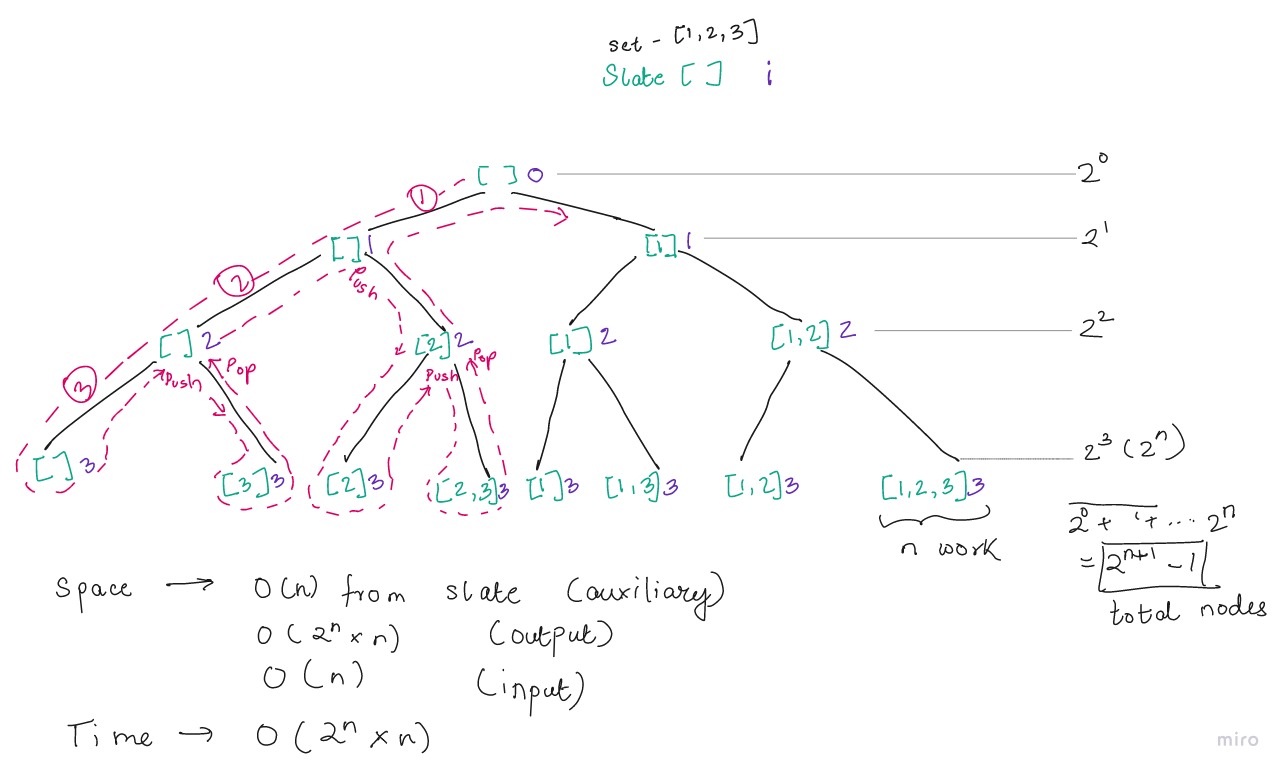 set - [1,2,3]
Slate [ ] i
[ ] 0 2^0
1
[ ] 1 [1] 1 2^1
2 Push
[ ] 2 [2] 2 [1] 2 [1,2] 2 2^2
3 Push Pop Push Pop
[ ] 3 [3] 3 [2] 3 [2,3] 3 [1] 3 [1,3] 3 [1,2] 3 [1,2,3] 3 2^3 (2^n)
n work
2^0 + ' + .... 2^n
= 2^n+1 - 1
total nodes
Space → O(n) from slate (auxiliary)
O(2^n × n) (output)
O(n) (input)
Time → O(2^n × n)
miro